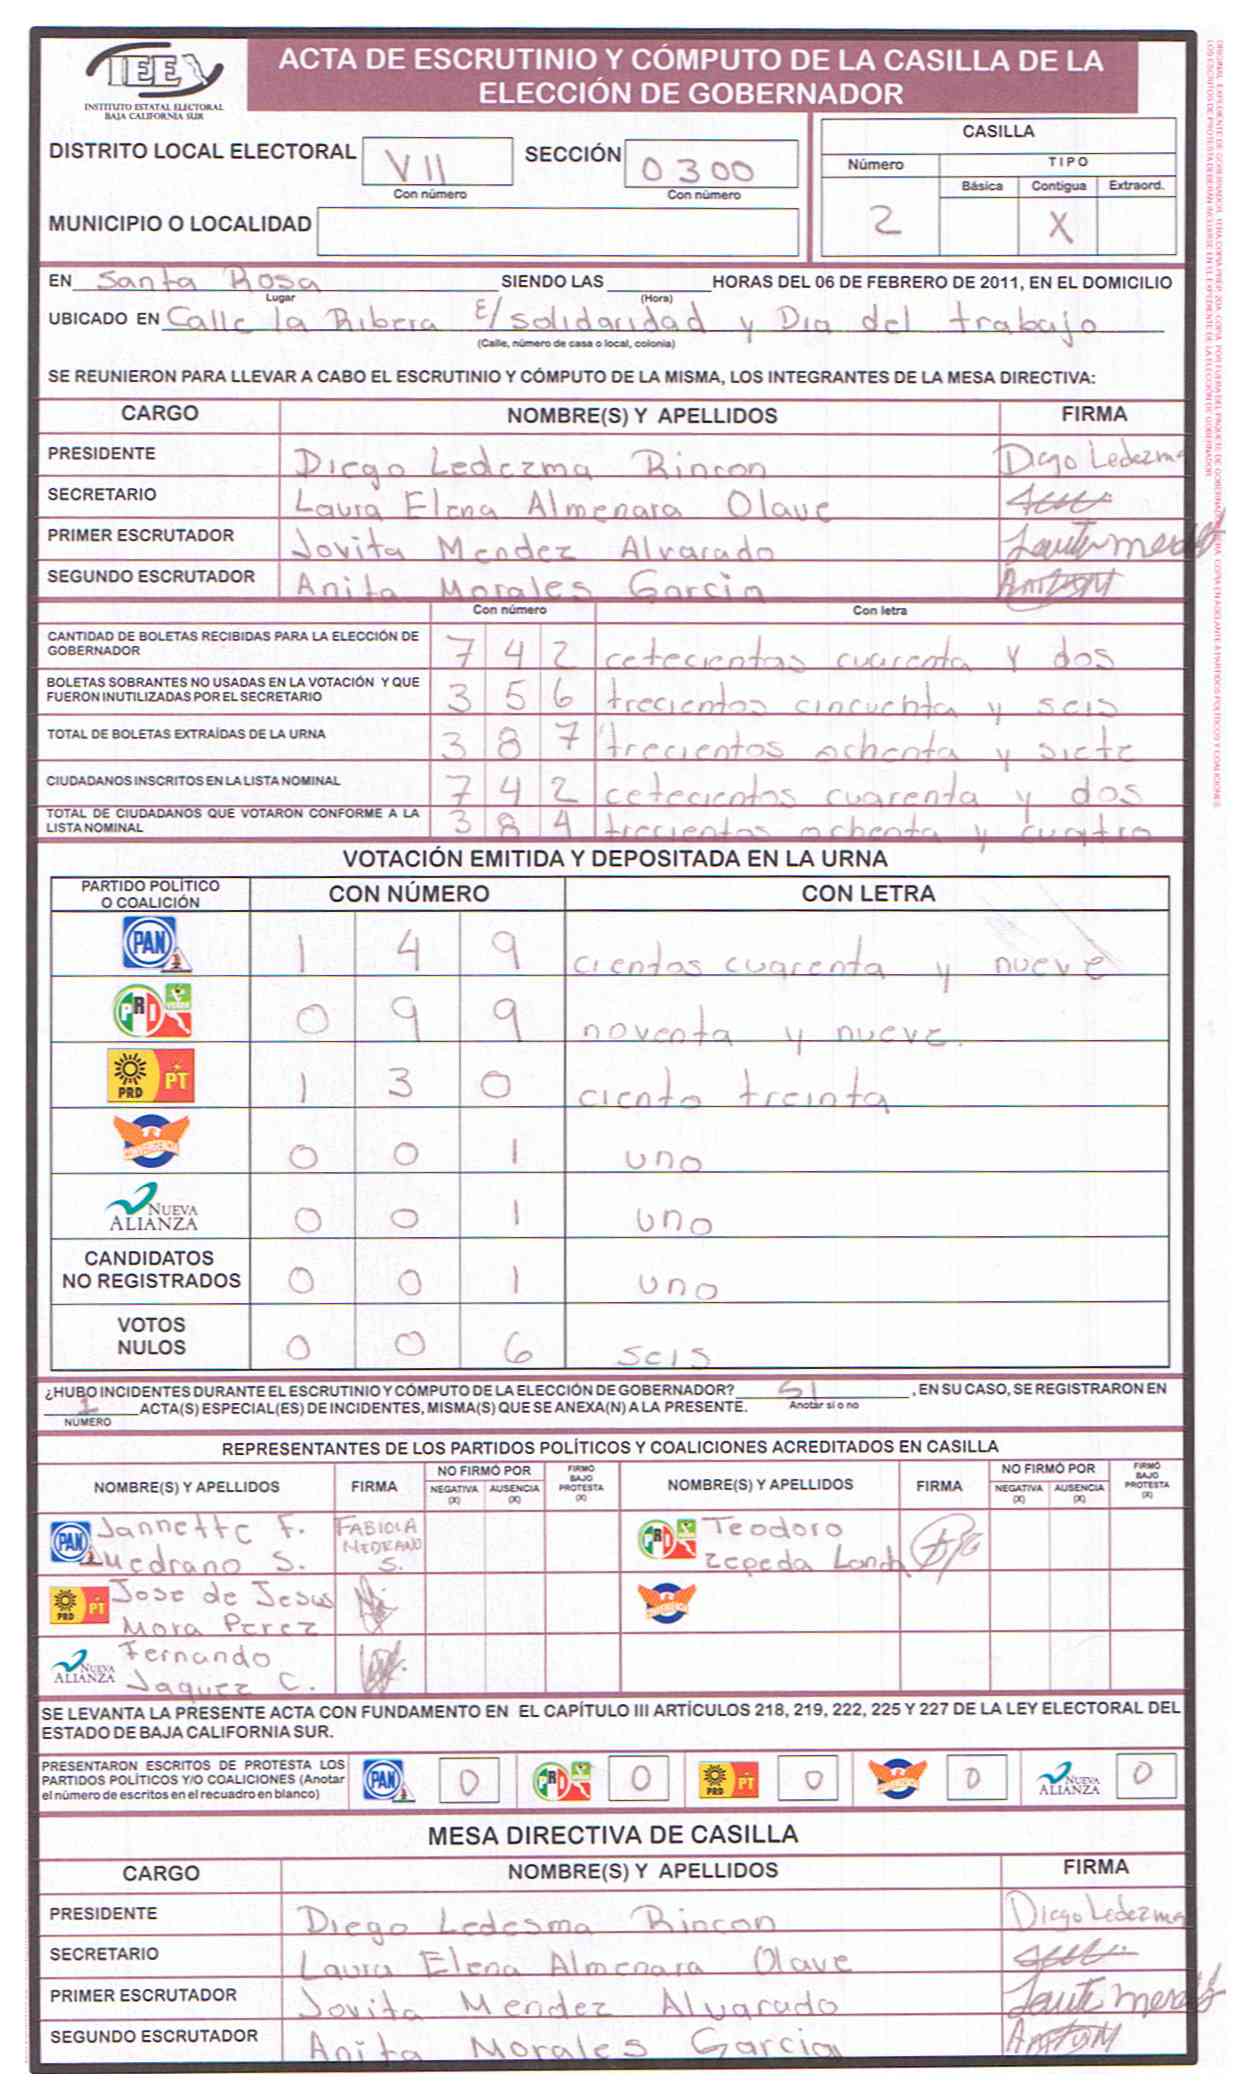 IEE
INSTITUTO ESTATAL ELECTORAL
BAJA CALIFORNIA SUR
ACTA DE ESCRUTINIO Y CÓMPUTO DE LA CASILLA DE LA
ELECCIÓN DE GOBERNADOR
DISTRITO LOCAL ELECTORAL VII SECCIÓN 0300
Con número Con número
MUNICIPIO O LOCALIDAD
CASILLA
Número TIPO
Básica Contigua Extraord.
2 X
EN Santa Rosa SIENDO LAS HORAS DEL 06 DE FEBRERO DE 2011, EN EL DOMICILIO
Lugar (Hora)
UBICADO EN Calle la Ribera E/ solidaridad y Dia del trabajo
(Calle, número de casa o local, colonia)
SE REUNIERON PARA LLEVAR A CABO EL ESCRUTINIO Y CÓMPUTO DE LA MISMA, LOS INTEGRANTES DE LA MESA DIRECTIVA:
CARGO NOMBRE(S) Y APELLIDOS FIRMA
PRESIDENTE Diego Ledezma Rincon Diego Ledezma
SECRETARIO Laura Elena Almenara Olave
PRIMER ESCRUTADOR Jovita Mendez Alvarado
SEGUNDO ESCRUTADOR Anita Morales Garcia
Con número Con letra
CANTIDAD DE BOLETAS RECIBIDAS PARA LA ELECCIÓN DE
GOBERNADOR 7 4 2 cetecientas cuarenta y dos
BOLETAS SOBRANTES NO USADAS EN LA VOTACIÓN Y QUE
FUERON INUTILIZADAS POR EL SECRETARIO 3 5 6 trecientos cincuenta y seis
TOTAL DE BOLETAS EXTRAÍDAS DE LA URNA 3 8 7 trecientos ochenta y siete
CIUDADANOS INSCRITOS EN LA LISTA NOMINAL 7 4 2 cetecientos cuarenta y dos
TOTAL DE CIUDADANOS QUE VOTARON CONFORME A LA
LISTA NOMINAL 3 8 4 trecientos ochenta y cuatro
VOTACIÓN EMITIDA Y DEPOSITADA EN LA URNA
PARTIDO POLÍTICO
O COALICIÓN CON NÚMERO CON LETRA
PAN 1 4 9 cientos cuarenta y nueve
PRI VERDE 0 9 9 noventa y nueve.
PRD PT 1 3 0 ciento treinta
CONVERGENCIA 0 0 1 uno
NUEVA ALIANZA 0 0 1 uno
CANDIDATOS
NO REGISTRADOS 0 0 1 uno
VOTOS
NULOS 0 0 6 seis
¿HUBO INCIDENTES DURANTE EL ESCRUTINIO Y CÓMPUTO DE LA ELECCIÓN DE GOBERNADOR? SI , EN SU CASO, SE REGISTRARON EN
Anotar sí o no
1 ACTA(S) ESPECIAL(ES) DE INCIDENTES, MISMA(S) QUE SE ANEXA(N) A LA PRESENTE.
NÚMERO
REPRESENTANTES DE LOS PARTIDOS POLÍTICOS Y COALICIONES ACREDITADOS EN CASILLA
NOMBRE(S) Y APELLIDOS FIRMA NO FIRMÓ POR NEGATIVA (X) AUSENCIA (X) FIRMÓ BAJO PROTESTA (X) NOMBRE(S) Y APELLIDOS FIRMA NO FIRMÓ POR NEGATIVA (X) AUSENCIA (X) FIRMÓ BAJO PROTESTA (X)
PAN Jannette F. FABIOLA PRI VERDE Teodoro
Medrano S. MEDRANO S. Zepeda Lond
PRD PT Jose de Jesus CONVERGENCIA
Mora Perez
NUEVA ALIANZA Fernando
Jaquez C.
SE LEVANTA LA PRESENTE ACTA CON FUNDAMENTO EN EL CAPÍTULO III ARTÍCULOS 218, 219, 222, 225 Y 227 DE LA LEY ELECTORAL DEL
ESTADO DE BAJA CALIFORNIA SUR.
PRESENTARON ESCRITOS DE PROTESTA LOS
PARTIDOS POLÍTICOS Y/O COALICIONES (Anotar
el número de escritos en el recuadro en blanco)
PAN 0 PRI VERDE 0 PRD PT 0 CONVERGENCIA 0 NUEVA ALIANZA 0
MESA DIRECTIVA DE CASILLA
CARGO NOMBRE(S) Y APELLIDOS FIRMA
PRESIDENTE Diego Ledesma Rincon Diego Ledezma
SECRETARIO Laura Elena Almenara Olave
PRIMER ESCRUTADOR Jovita Mendez Alvarado
SEGUNDO ESCRUTADOR Anita Morales Garcia